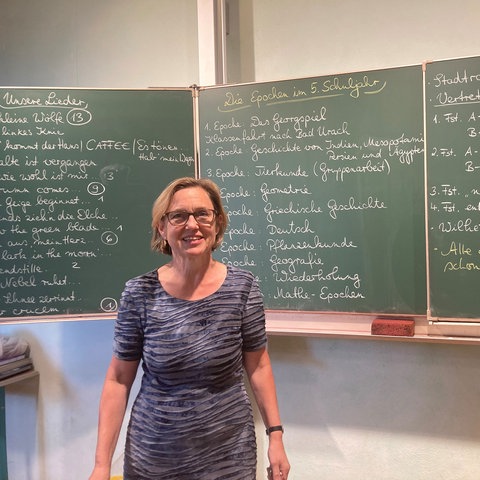 Unsere Lieder
kleine Wölfe (13)
linkes Knie
kommt der Hans / CAFFEE / Es tönen
Hab' mein
alte ist vergangen
wie wohl ist mir 3
comes... (9)
Geige beginnet... 1
ziehn die Elche
the green blade 1
aus mein Herz (6)
Lark in the morn 2
stille 2
Nebel ruhet...
crucem (1)
Die Epochen im 5. Schuljahr
1. Epoche: Das Georgspiel
Klassenfahrt nach Bad Urach
2. Epoche: Geschichte von Indien, Mesopotami
Persien und Ägypt
3. Epoche: Tierkunde (Gruppenarbeit)
Epoche: Geometrie
Epoche: Griechische Geschichte
Epoche: Deutsch
Epoche: Pflanzenkunde
Epoche: Geografie
Epoche: Wiederholung
Mathe-Epochen
Stadtra
Vertret
1. Fst. A-
B-
2. Fst. A-
B-
3. Fst. "
4. Fst. ent
Wilhe
- Alle
schon